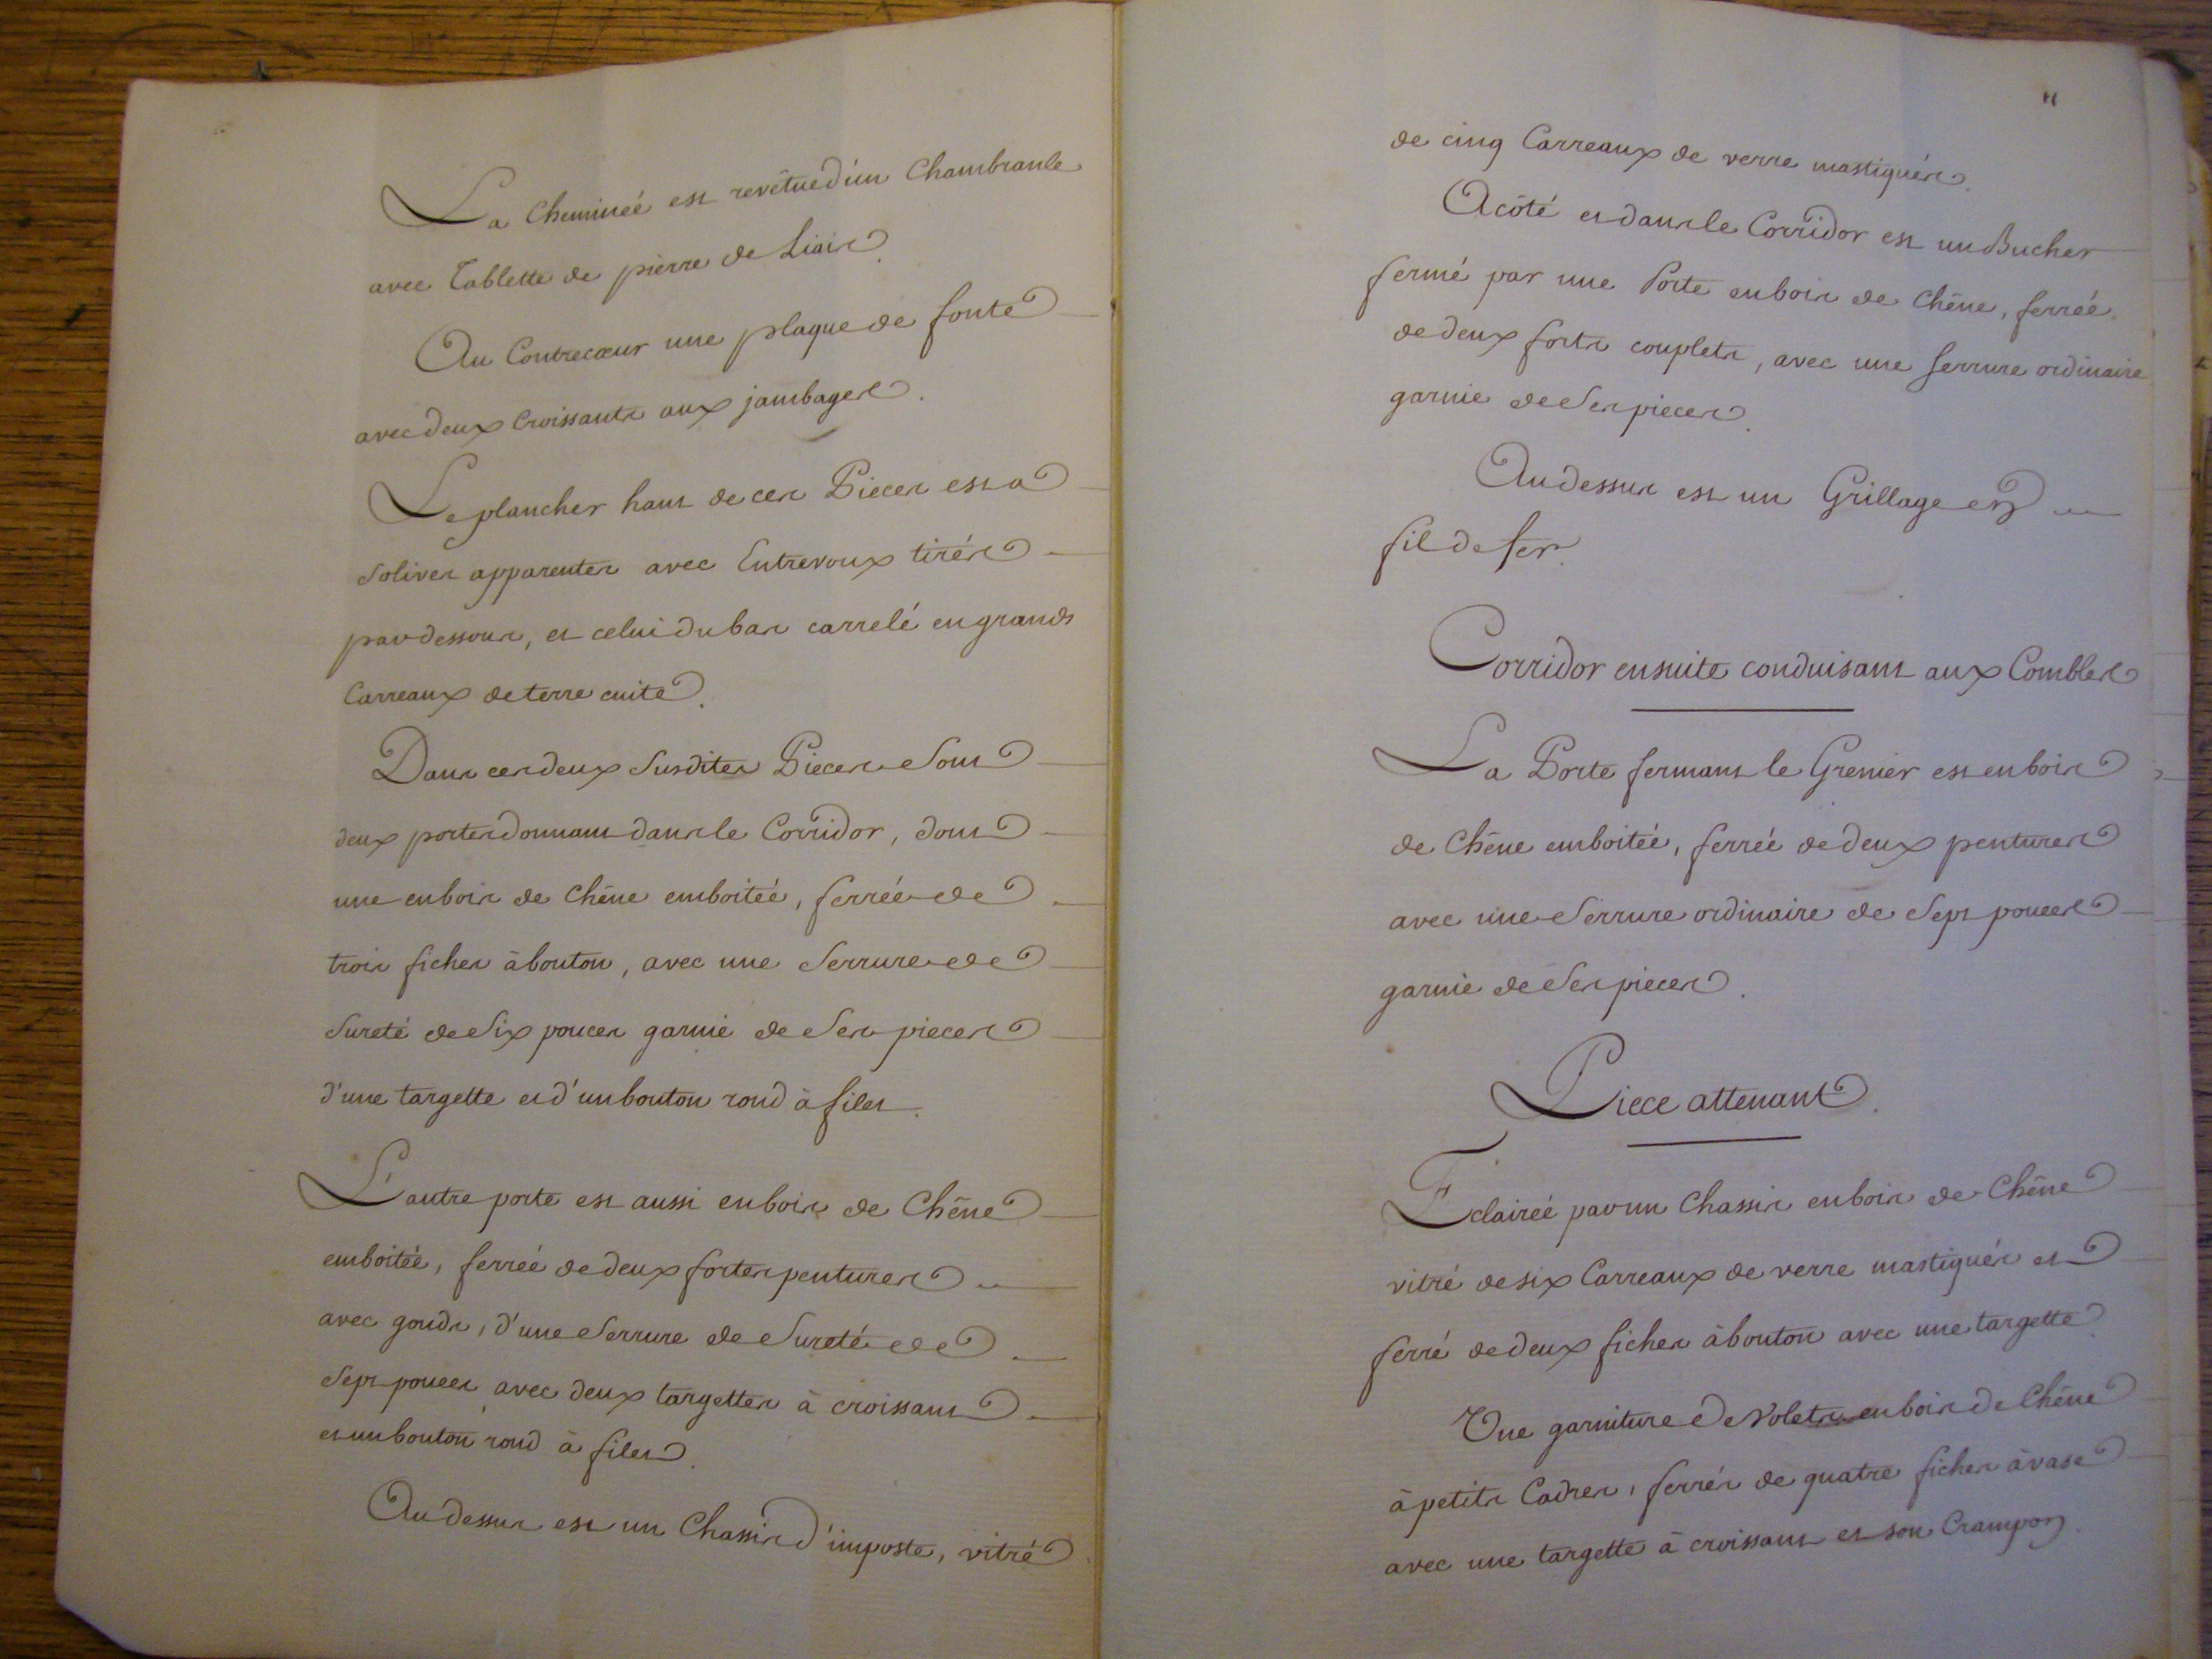 La Cheminéé est revêtue d'un Chambranle
avec Tablette de pierre de Liais.
Au Contrecœur une plaque de fonte
avec deux Croissants aux jambages.
Le plancher haut de ces Pieces est a
Solives apparentes avec Entrevoux tirés
par dessous, et celui du bas carrelé en grands
Carreaux de terre cuite.
Dans ces deux Susdites Pieces Sont
deux portes donnant dans le Corridor, dont
une en bois de Chêne emboitéé, ferréé de
trois fiches à bouton, avec une Serrure de
Sureté de Six pouces garnie de Ses pieces
d'une targette et d'un bouton rond à filet.
L'autre porte est aussi en bois de Chêne
emboitéé, ferréé de deux fortes pentures
avec gonds, d'une Serrure de Sureté de
Sept pouces avec deux targettes à croissant
et un bouton rond à filet.
Au dessus est un Chassis d'imposte, vitré
11
de cinq Carreaux de verre mastiqués.
A côté et dans le Corridor est un Bucher
fermé par une Porte en bois de Chêne, ferréé
de deux forts couplets, avec une Serrure ordinaire
garnie de Ses pieces.
Au dessus est un Grillage en
fil de fer.
Corridor ensuite conduisant aux Combles
La Porte fermant le Grenier est en bois
de Chêne emboitéé, ferréé de deux pentures
avec une Serrure ordinaire de Sept pouces
garnie de Ses pieces.
Piece attenant.
Eclairéé par un Chassis en bois de Chêne
vitré de six Carreaux de verre mastiqués et
ferré de deux fiches à bouton avec une targette.
Une garniture de Volets en bois de Chêne
à petits Cadres, ferrés de quatre fiches à vase
avec une targette à croissant et son Crampon.